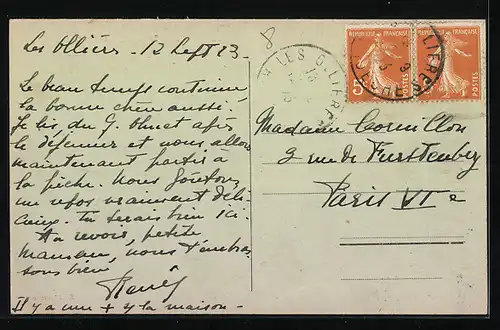 Les Ollières _ 12 Sept 23 _
8
Le beau temps continue
la bonne chère aussi.
Je lis du G. Ohnet après
le déjeuner et nous allons
maintenant partir à
la pêche. Nous goûtons
un repos vraiment déli-
cieux. Tu serais bien ici.
Au revoir, petite
Maman, nous t'embras
sons bien
Il y a une + s/ la maison _
Madame Cornillon
2 rue de Furstenberg
Paris VIe
RÉPUBLIQUE FRANÇAISE
5c
POSTES
RÉPUBLIQUE FRANÇAISE
POSTES
LES OLLIÈRES